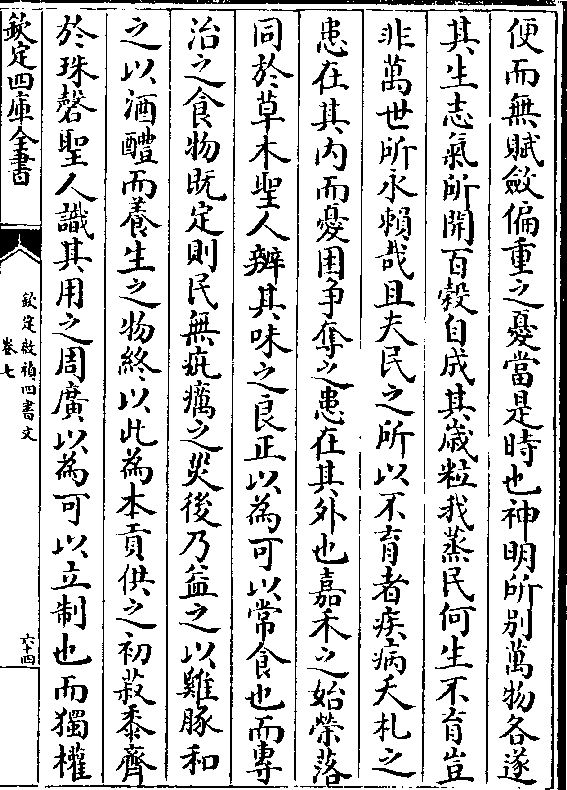 便而無賦斂偏重之憂當是時也神明所别萬物各遂
其生志氣所開百穀自成其歳粒我蒸民何生不育豈
非萬世所永賴哉且夫民之所以不育者疾病夭札之
患在其内而憂困争奪之患在其外也嘉禾之始榮落
同於草木聖人辨其味之良正以為可以常食也而專
治之食物既定則民無疵癘之災後乃益之以雞豚和
之以酒醴而養生之物終以此為本貢供之初菽黍齊
於珠磬聖人識其用之周廣以為可以立制也而獨權
欽定四庫全書
欽定啟禎四書文
卷七
六十四